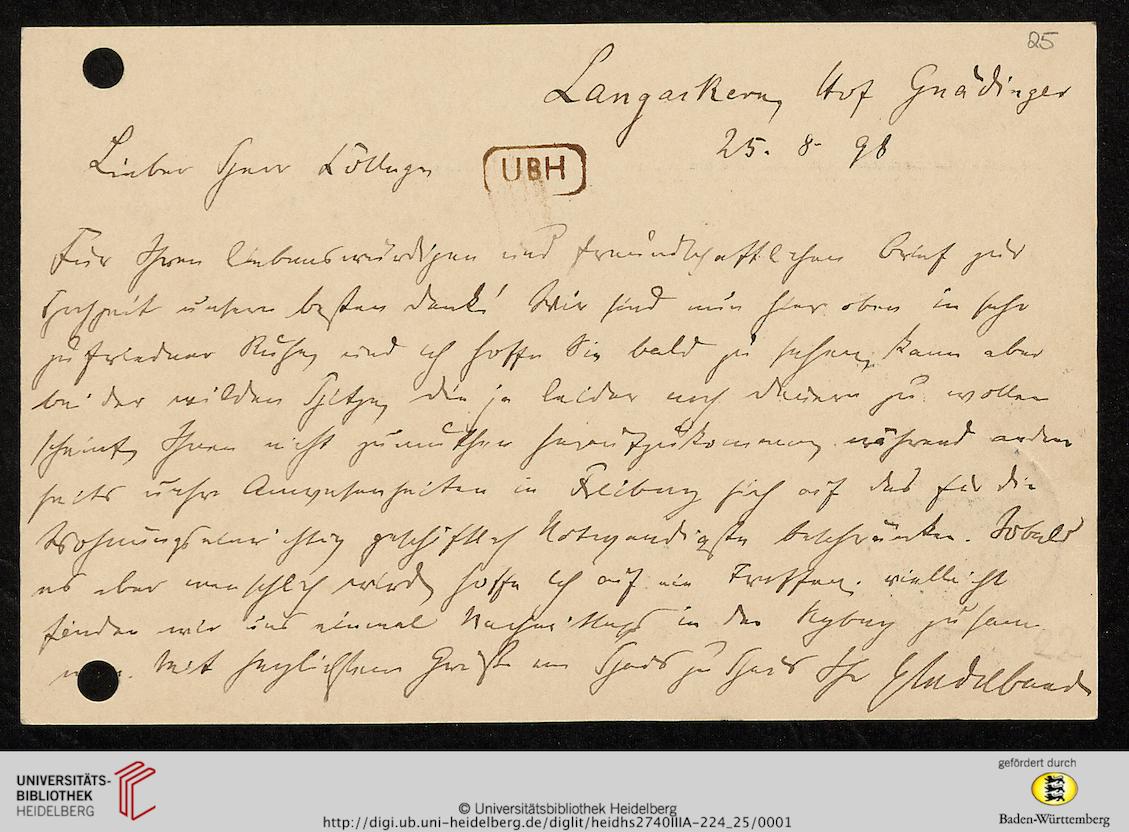 25
Langackern, Hof Gnädinger
25. 8. 98
Lieber Herr College
UBH
Für Ihren liebenswürdigen und freundschaftlichen Brief zur
Hochzeit unsern besten Dank! Wir sind nun hier oben in sehr
zufriedner Ruhe, und ich hoffe Sie bald zu sehen, kann aber
bei der wilden Hitze, die ja leider noch dauern zu wollen
scheint, Ihnen nicht zumuthen heraufzukommen, während andrer
seits unsre Anwesenheiten in Freiburg sich auf das für die
Wohnungseinrichtung geschäftlich Notwendigste beschränken. Sobald
es aber menschlich wird, hoffe ich auf ein Treffen. vielleicht
finden wir uns einmal Nachmittags in der zusam
men. Mit herzlichsten Grüßen von Haus zu Haus Ihr Windelband
UNIVERSITÄTS-
BIBLIOTHEK
HEIDELBERG
© Universitätsbibliothek Heidelberg
http://digi.ub.uni-heidelberg.de/diglit/heidhs2740IIIA-224_25/0001
gefördert durch
Baden-Württemberg